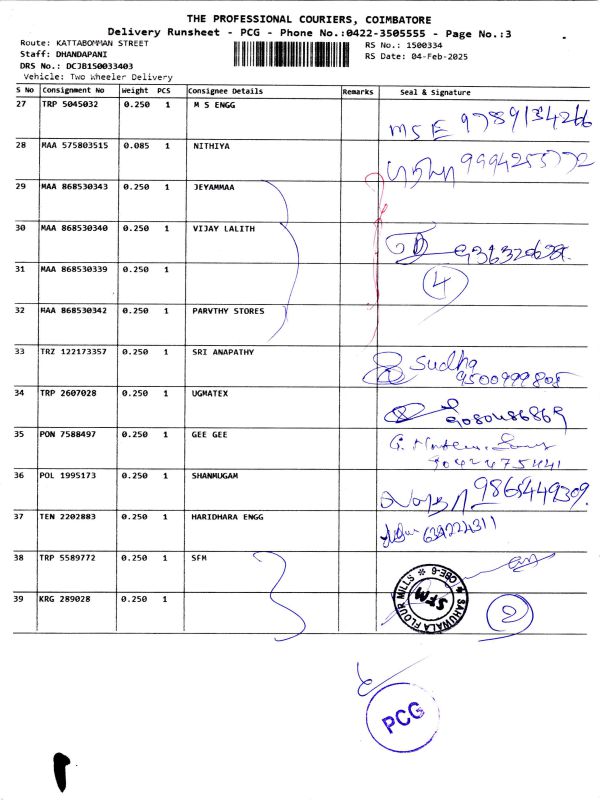 THE PROFESSIONAL COURIERS, COIMBATORE
Delivery Runsheet - PCG - Phone No.:0422-3505555 - Page No.:3
Route: KATTABOMMAN STREET
RS No.: 1500334
Staff: DHANDAPANI
RS Date: 04-Feb-2025
DRS No.: DCJB150033403
Vehicle: Two Wheeler Delivery
S No Consignment No Weight PCS Consignee Details Remarks Seal & Signature
27 TRP 5045032 0.250 1 M S ENGG MSE 9789134266
28 MAA 575803515 0.085 1 NITHIYA
29 MAA 868530343 0.250 1 JEYAMMAA
30 MAA 868530340 0.250 1 VIJAY LALITH
31 MAA 868530339 0.250 1 4
32 MAA 868530342 0.250 1 PARVTHY STORES
33 TRZ 122173357 0.250 1 SRI ANAPATHY Sudha
9500999805
34 TRP 2607028 0.250 1 UGMATEX
35 PON 7588497 0.250 1 GEE GEE
36 POL 1995173 0.250 1 SHANMUGAM 9865449309
37 TEN 2202883 0.250 1 HARIDHARA ENGG
38 TRP 5589772 0.250 1 SFM
39 KRG 289028 0.250 1 SAHUWALA FLOUR MILLS * CBE-6 * SFM 2
PCG